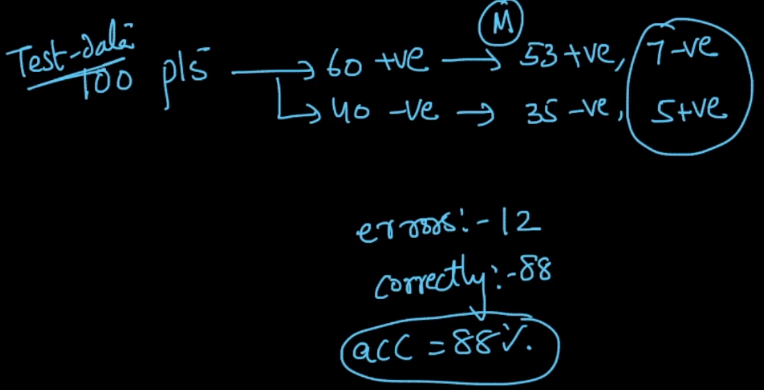 M
Test-data 100 pts → 60 +ve → 53 +ve, 7 -ve
↳ 40 -ve → 35 -ve, 5 +ve
errors:- 12
correctly:- 88
acc = 88%.